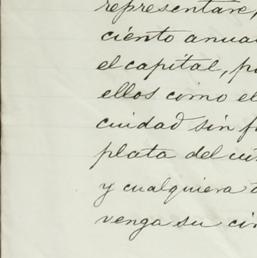 representare,
ciento anua
el capital, p
ellos como el
cuidad sin f
plata del cu
y cualquiera
venga su ci